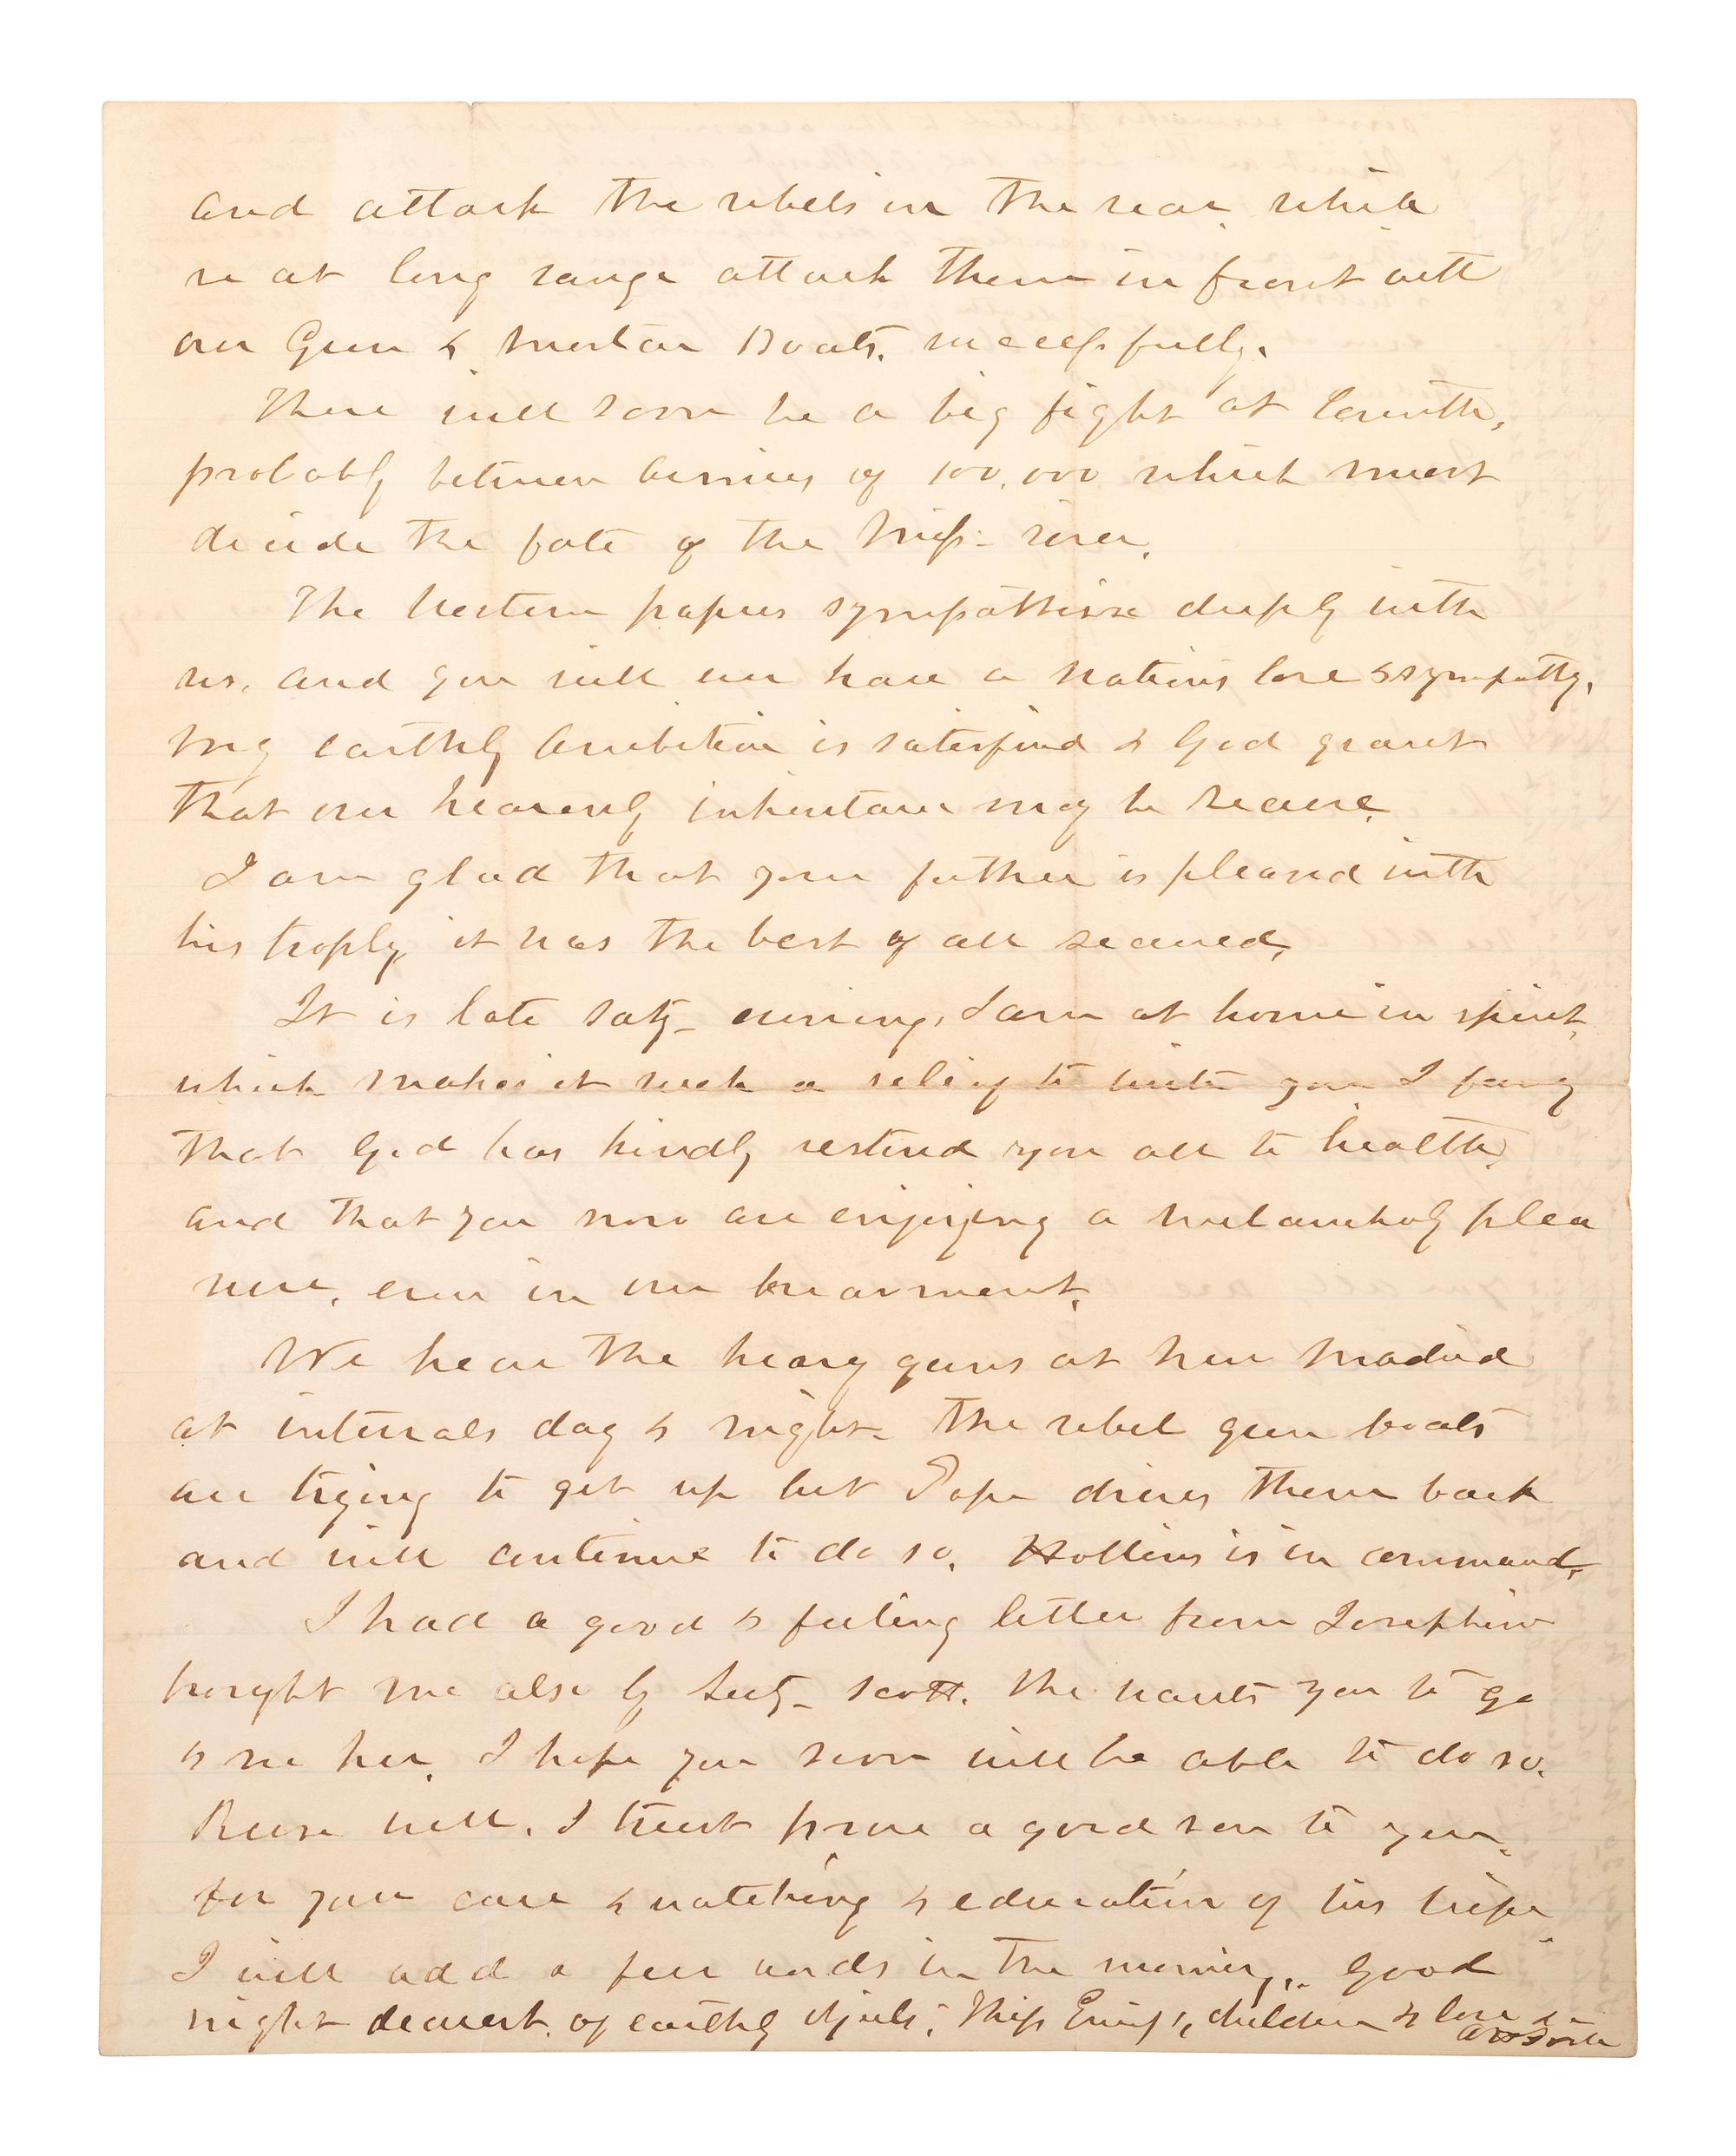 and attack the rebels in the rear while
we at long range attack them in front with
our Gun & Mortar Boats, successfully.
There will soon be a big fight at Corinth,
probably between armies of 100,000 which must
decide the fate of the Miss. river.
The Western papers sympathise deeply with
us, and you will ever have a nations love & sympathy,
My earthly ambition is satisfied & God grant
that our heavenly inheritance may be secure.
I am glad that your father is pleased with
his trophy, it was the best of all secured,
It is late Saty. evening, I am at home in spirit,
which makes it such a relief to write you I fancy
that God has kindly restored you all to health,
and that you now are enjoying a melancholy plea
sure, even in our bereavement.
We hear the heavy guns at New Madrid
at intervals day & night. The rebel gun boats
are trying to get up but Pope drives them back
and will continue to do so. Hollins is in command,
I had a good & feeling letter from Josephine
brought me also by Secty. Scott. She wants you to go
& see her. I hope you soon will be able to do so.
will, I trust prove a good son to you,
for your care & watching & education of his
I will add a few words in the morning,. Good
night dearest of earthly objects, Kiss children & love